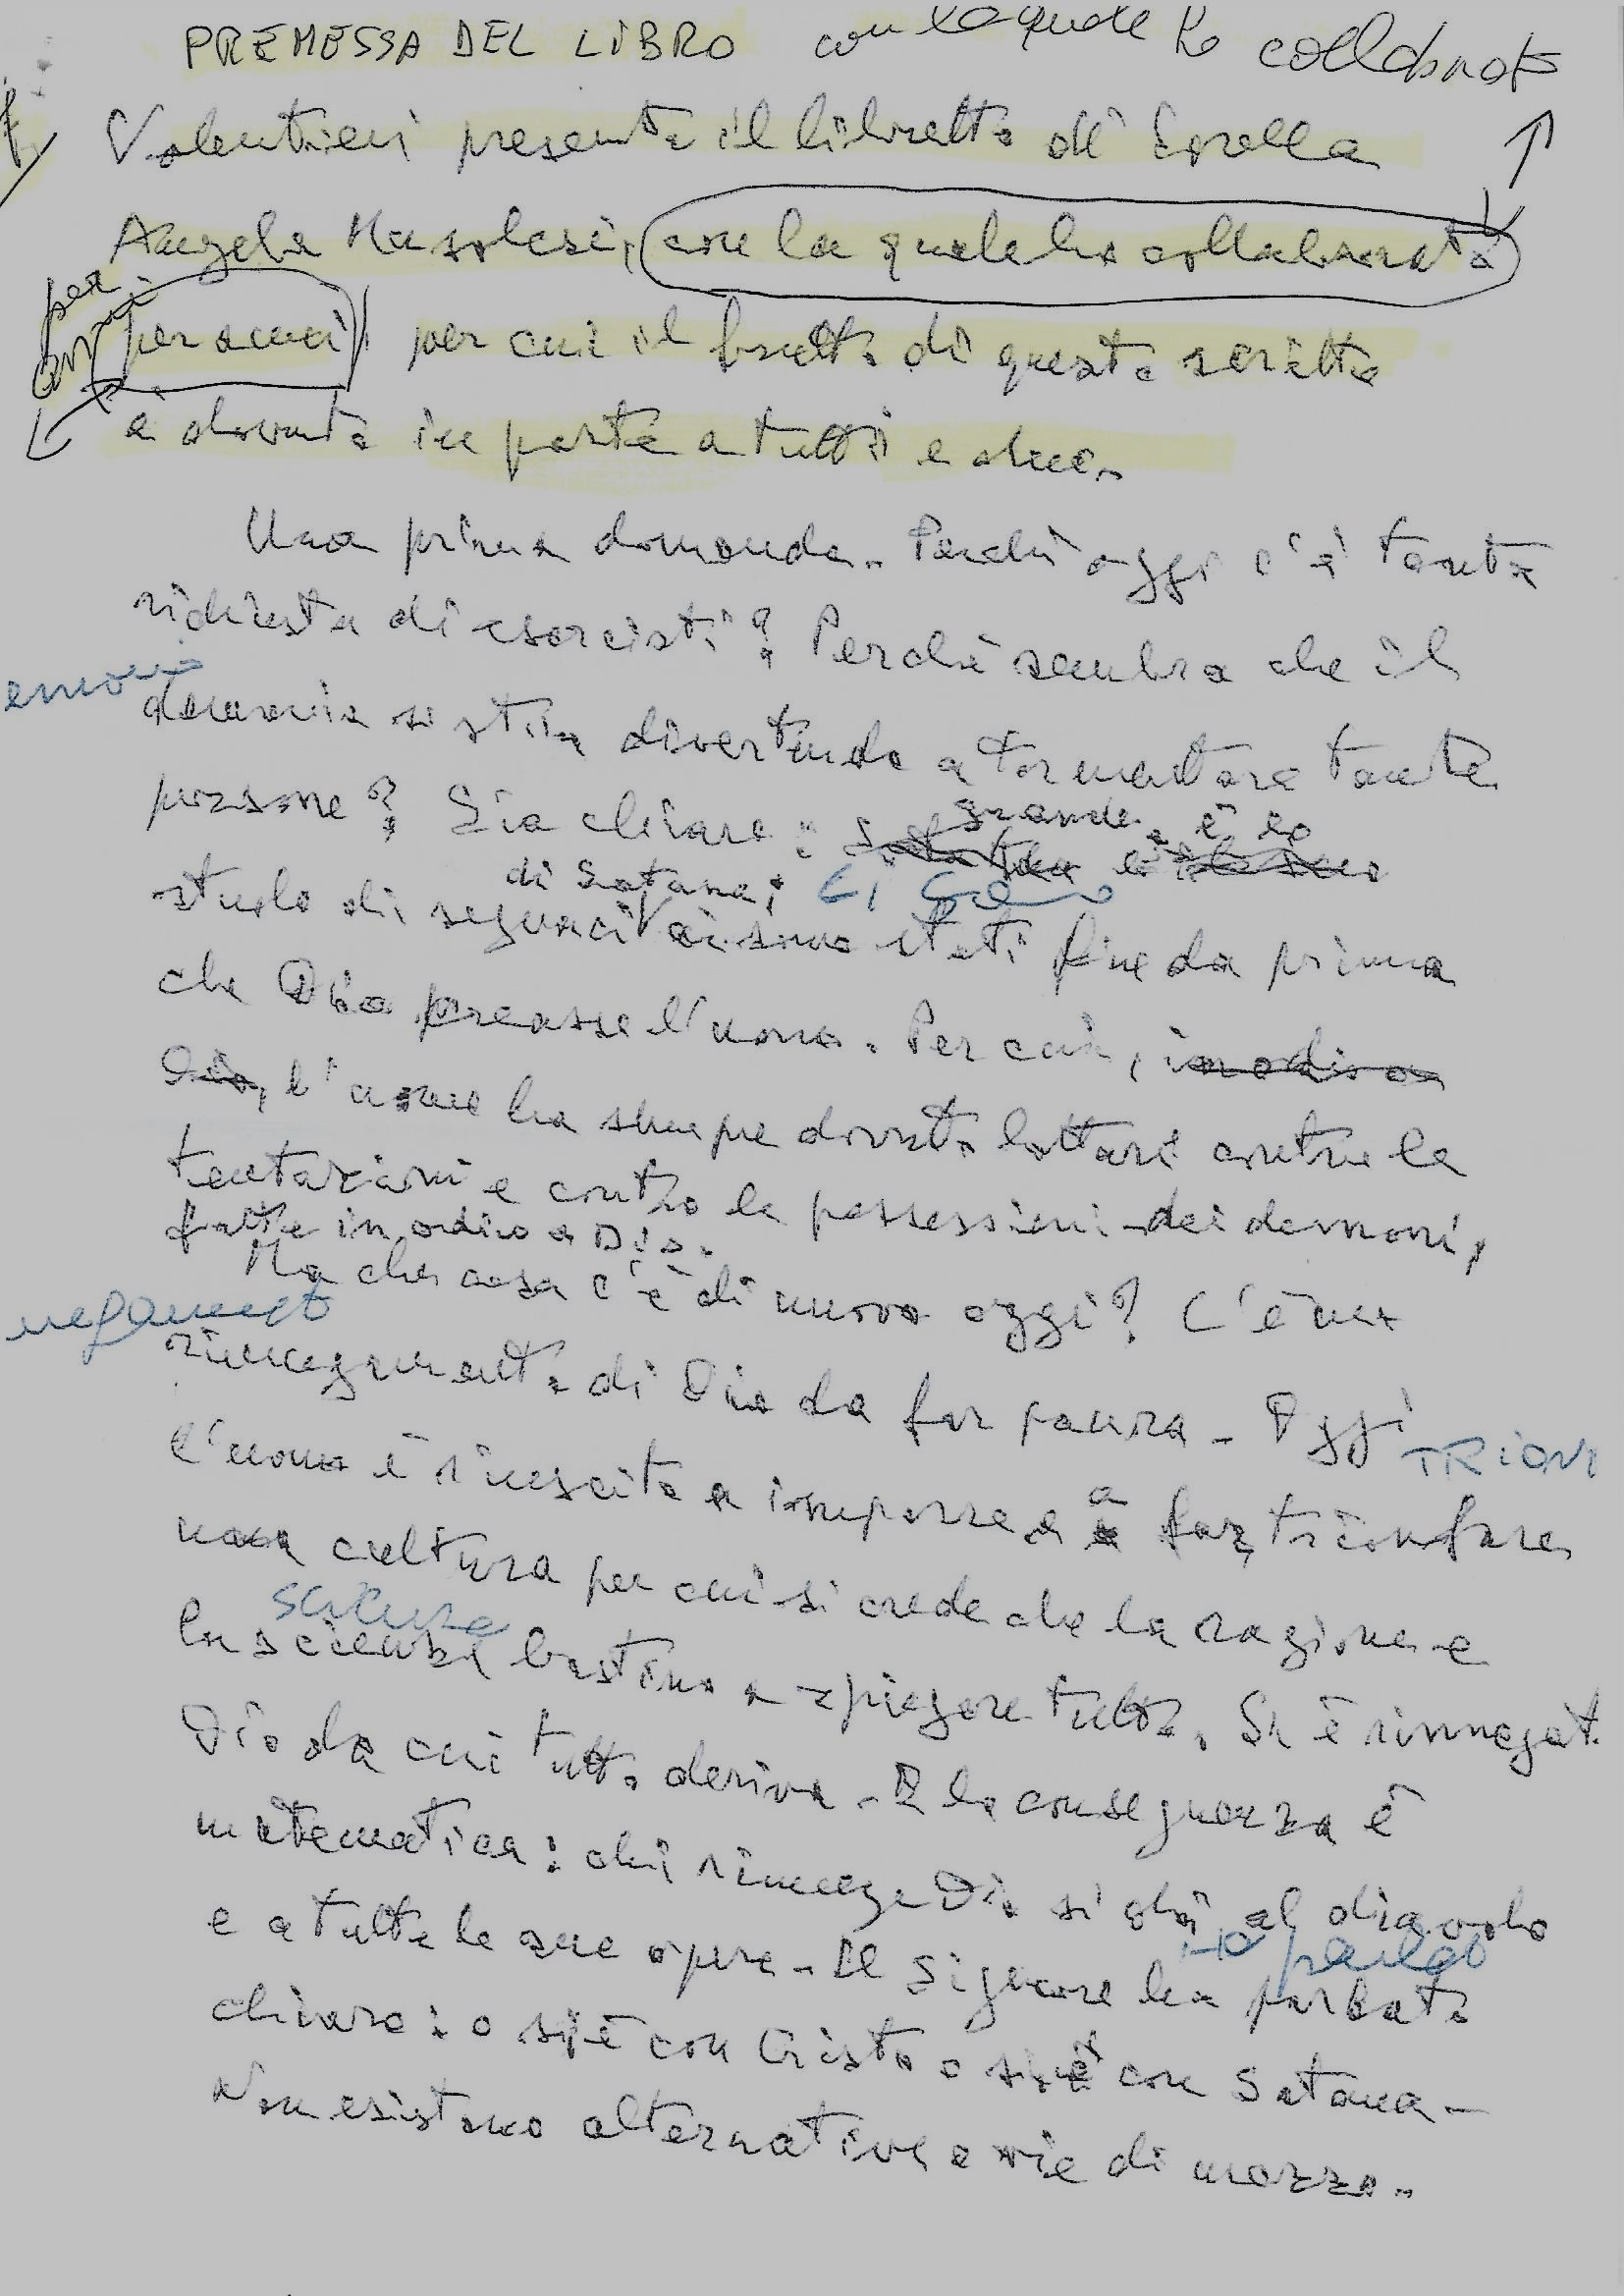 PREMESSA DEL LIBRO con la quale ho collaborato
Volentieri presento il libretto di Sorella
Angela Musolesi, con la quale ho collaborato
per
anni
per anni per cui il frutto di questo scritto
è dovuto in parte a tutti e due.
Una prima domanda. Perché oggi c'è tanta
richiesta di esorcisti? Perché sembra che il
demonio si stia divertendo a tormentare tante
persone? Sia chiaro: grande è lo
stuolo di seguaci di Satana; ci sono
ci sono stati fin da prima
che Dio creasse l'uomo. Per cui, in odio a
Dio, l'uomo ha sempre dovuto lottare contro le
tentazioni e contro le possessioni dei demoni,
fatte in odio a Dio.
Ma che cosa c'è di nuovo oggi? C'è un
negamento
rinnegamento di Dio da far paura. Oggi
TRION
l'uomo è riuscito a imporre e a far trionfare
una cultura per cui si crede che la ragione e
scienza
la scienza bastino a spiegare tutto. Si è rinnegato
Dio da cui tutto deriva. E la conseguenza è
matematica: chi rinnega Dio si dà al diavolo
e a tutte le sue opere. Il Signore ha parlato
ha parlato
chiaro: o si è con Cristo o si è con Satana.
Non esistono alternative o vie di mezzo.